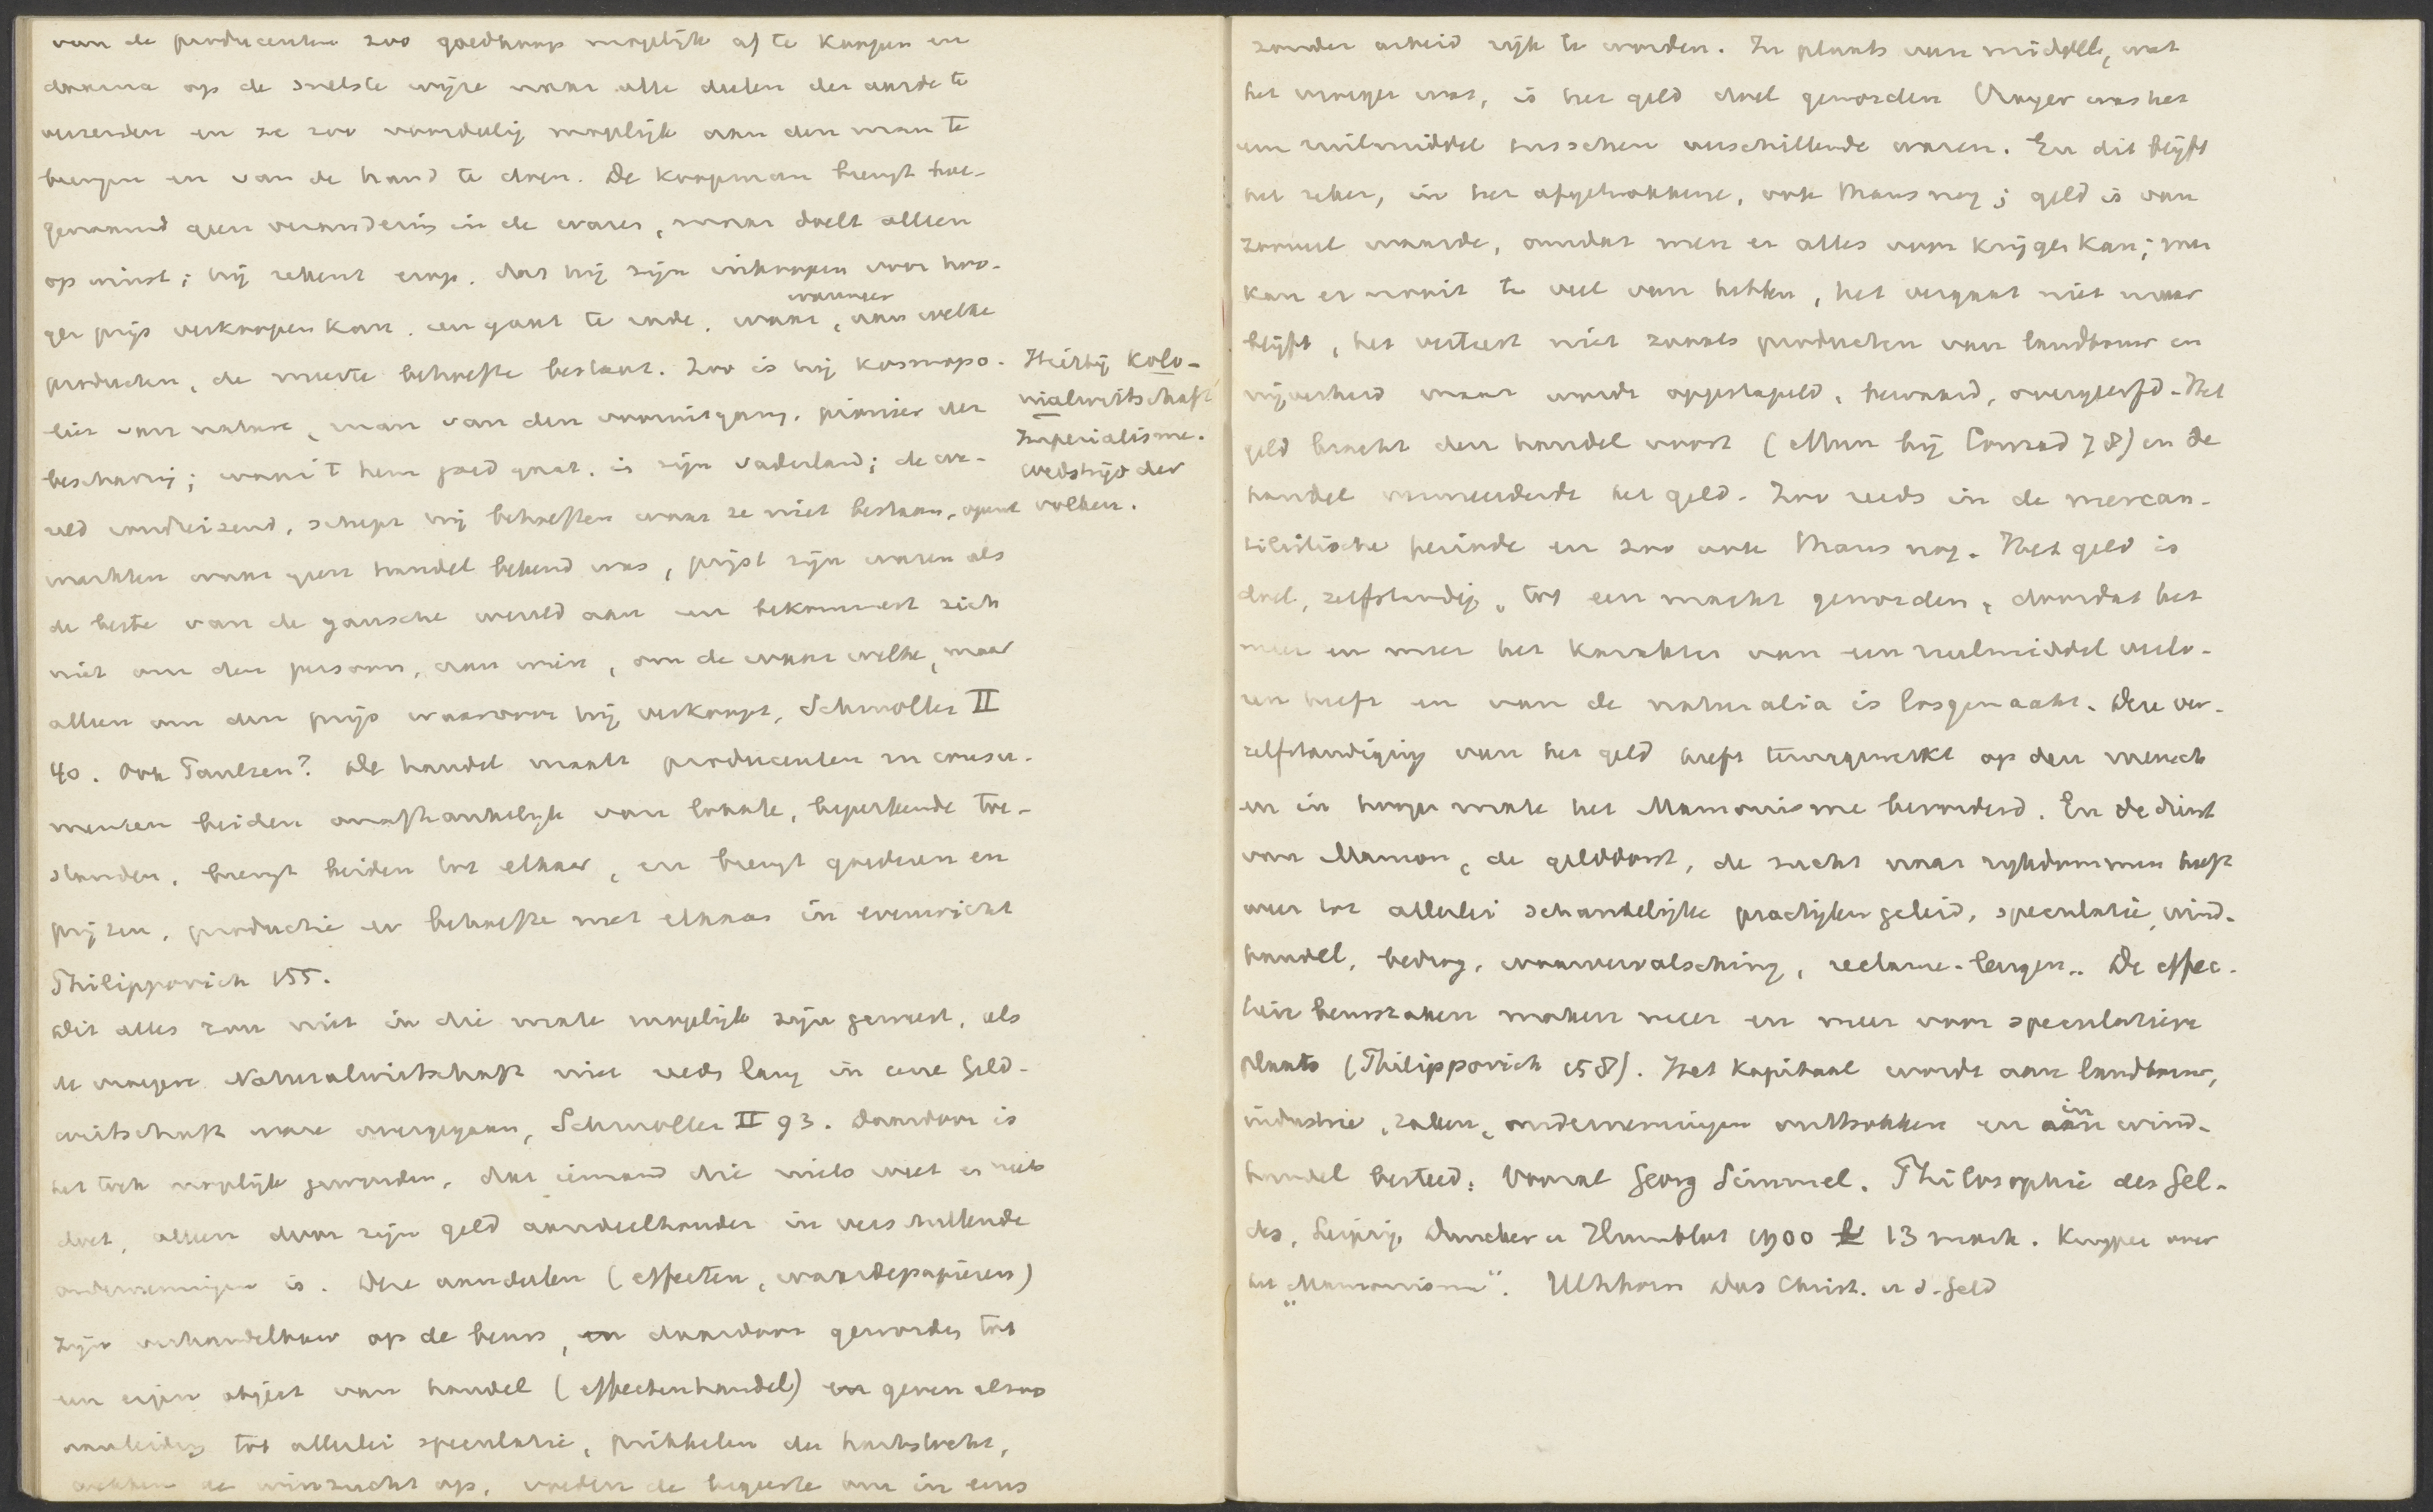 van de producenten zoo goedkoop mogelijk af te koopen en
daarna op de snelste wijze naar alle deelen der aarde te
verzenden en ze zoo voordeelig mogelijk aan den man te
brengen en van de hand te doen. De koopman brengt hoe-
genaamd geen verandering in de waren, maar doelt alleen
op winst; hij rekent erop, dat hij zijn inkoopen voor hoo-
ger prijs verkoopen kan, en gaat te rade, waar, wanneer, aan welke
producten, de meeste behoefte bestaat. Zoo is hij kosmopo-
liet van nature, man van den vooruitgang, pionier der
beschaving; waar 't hem goed gaat, is zijn vaderland; de we-
reld rondreizend, schept hij behoeften waar ze niet bestaan, opent
markten waar geen handel bekend was, prijst zijn waren als
de beste van de gansche wereld aan en bekommert zich
niet om den persoon, aan wien, om de waar welke, maar
alleen om den prijs waarvoor hij verkoopt, Schmoller II
40. Ook Paulsen? De handel maakt producenten en consu-
menten beiden onafhankelijk van locale, beperkende toe-
standen, brengt beiden tot elkaar, en brengt goederen en
prijzen, productie en behoefte met elkaar in evenwicht
Philippovich 155.
Dit alles zou niet in die mate mogelijk zijn geweest, als
de vroegere Naturalwirtschaft niet reeds lang in eene Geld-
wirtschaft ware overgegaan, Schmoller II 93. Daardoor is
het toch mogelijk geworden, dat iemand die niets weet er niets
doet, alleen door zijn geld aandeelhouder in verschillende
ondernemingen is. Deze aandeelen (effecten, waardepapieren)
zijn verhandelbaar op de beurs, en daardoor geworden tot
een eigen object van handel (effectenhandel) en geven alzoo
aanleiding tot allerlei speculatie, prikkelen den hartstocht,
wekken de winzucht op, voeden de begeerte om in eens
Hierbij Kolo-
nialwirtschaft
Imperialisme.
wedstrijd der
volken.
zonder arbeid rijk te worden. In plaats van middel, wat
het vroeger was, is het geld doel geworden Vroeger was het
een ruilmiddel tusschen verschillende waren. En dit blijft
het zeker, in het afgetrokkene, ook thans nog; geld is van
zooveel waarde, omdat men er alles voor krijgen kan; men
kan er nooit te veel van hebben, het vergaat niet maar
blijft, het verteert niet zooals producten van landbouw en
nijverheid maar wordt opgestapeld, bewaard, overgeerfd. Het
geld bracht den handel voort (Mun bij Conrad 78) en de
handel vermeerderde het geld. Zoo reeds in de mercan-
tilistische periode en zoo ook thans nog. Het geld is
doel, zelfstandig, tot een macht geworden, doordat het
meer en meer het karakter van een ruilmiddel verlo-
ren heeft en van de naturalia is losgemaakt. Deze ver-
zelfstandiging van het geld heeft teruggewerkt op den mensch
en in hooge mate het Mammonisme bevorderd. En de dienst
van Mammon, de gelddorst, de zucht naar rijkdommen heeft
weer tot allerlei schandelijke practijken geleid, speculatie, wind-
handel, bedrog, waarvervalsching, reclame-leugen.. De effec-
tieve beurszaken maken meer en meer voor speculatieve
plaats (Philippovich 158). Het kapitaal wordt aan landbouw,
industrie, zaken, ondernemingen onttrokken en aan in wind-
handel besteed. Vooral Georg Simmel. Philosophie des Gel-
des, Leipzig Duncker u Humblot 1900 13 mark. Kuyper over
het „Mammonisme". Uhlhorn Das Christ. u d. Geld